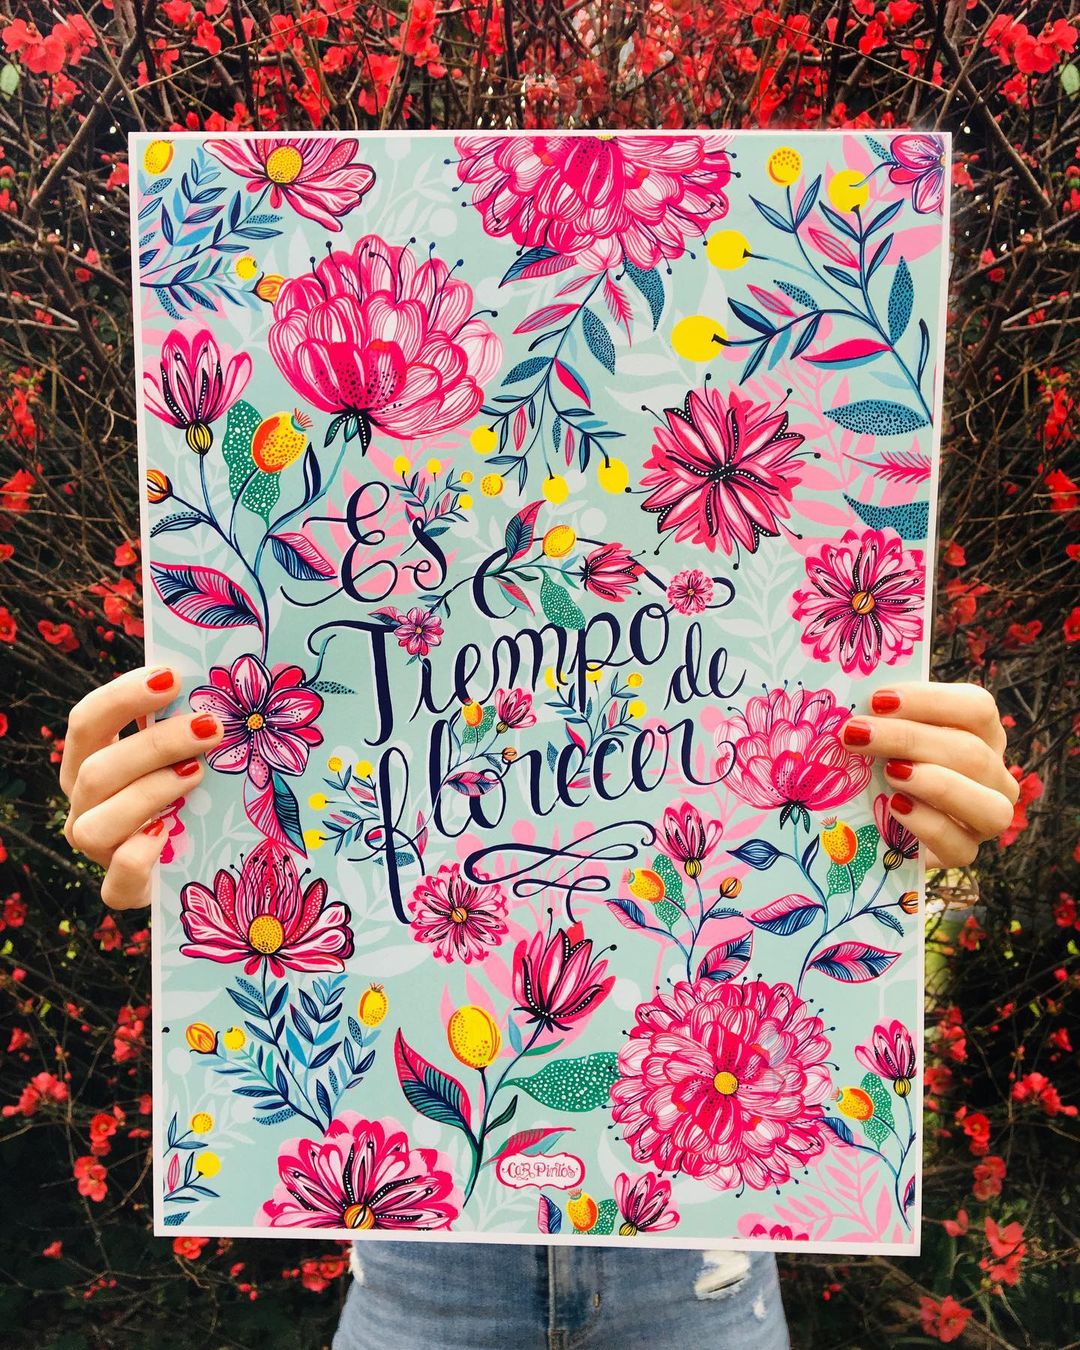 Es
Tiempo de
florecer
CoR Piritos